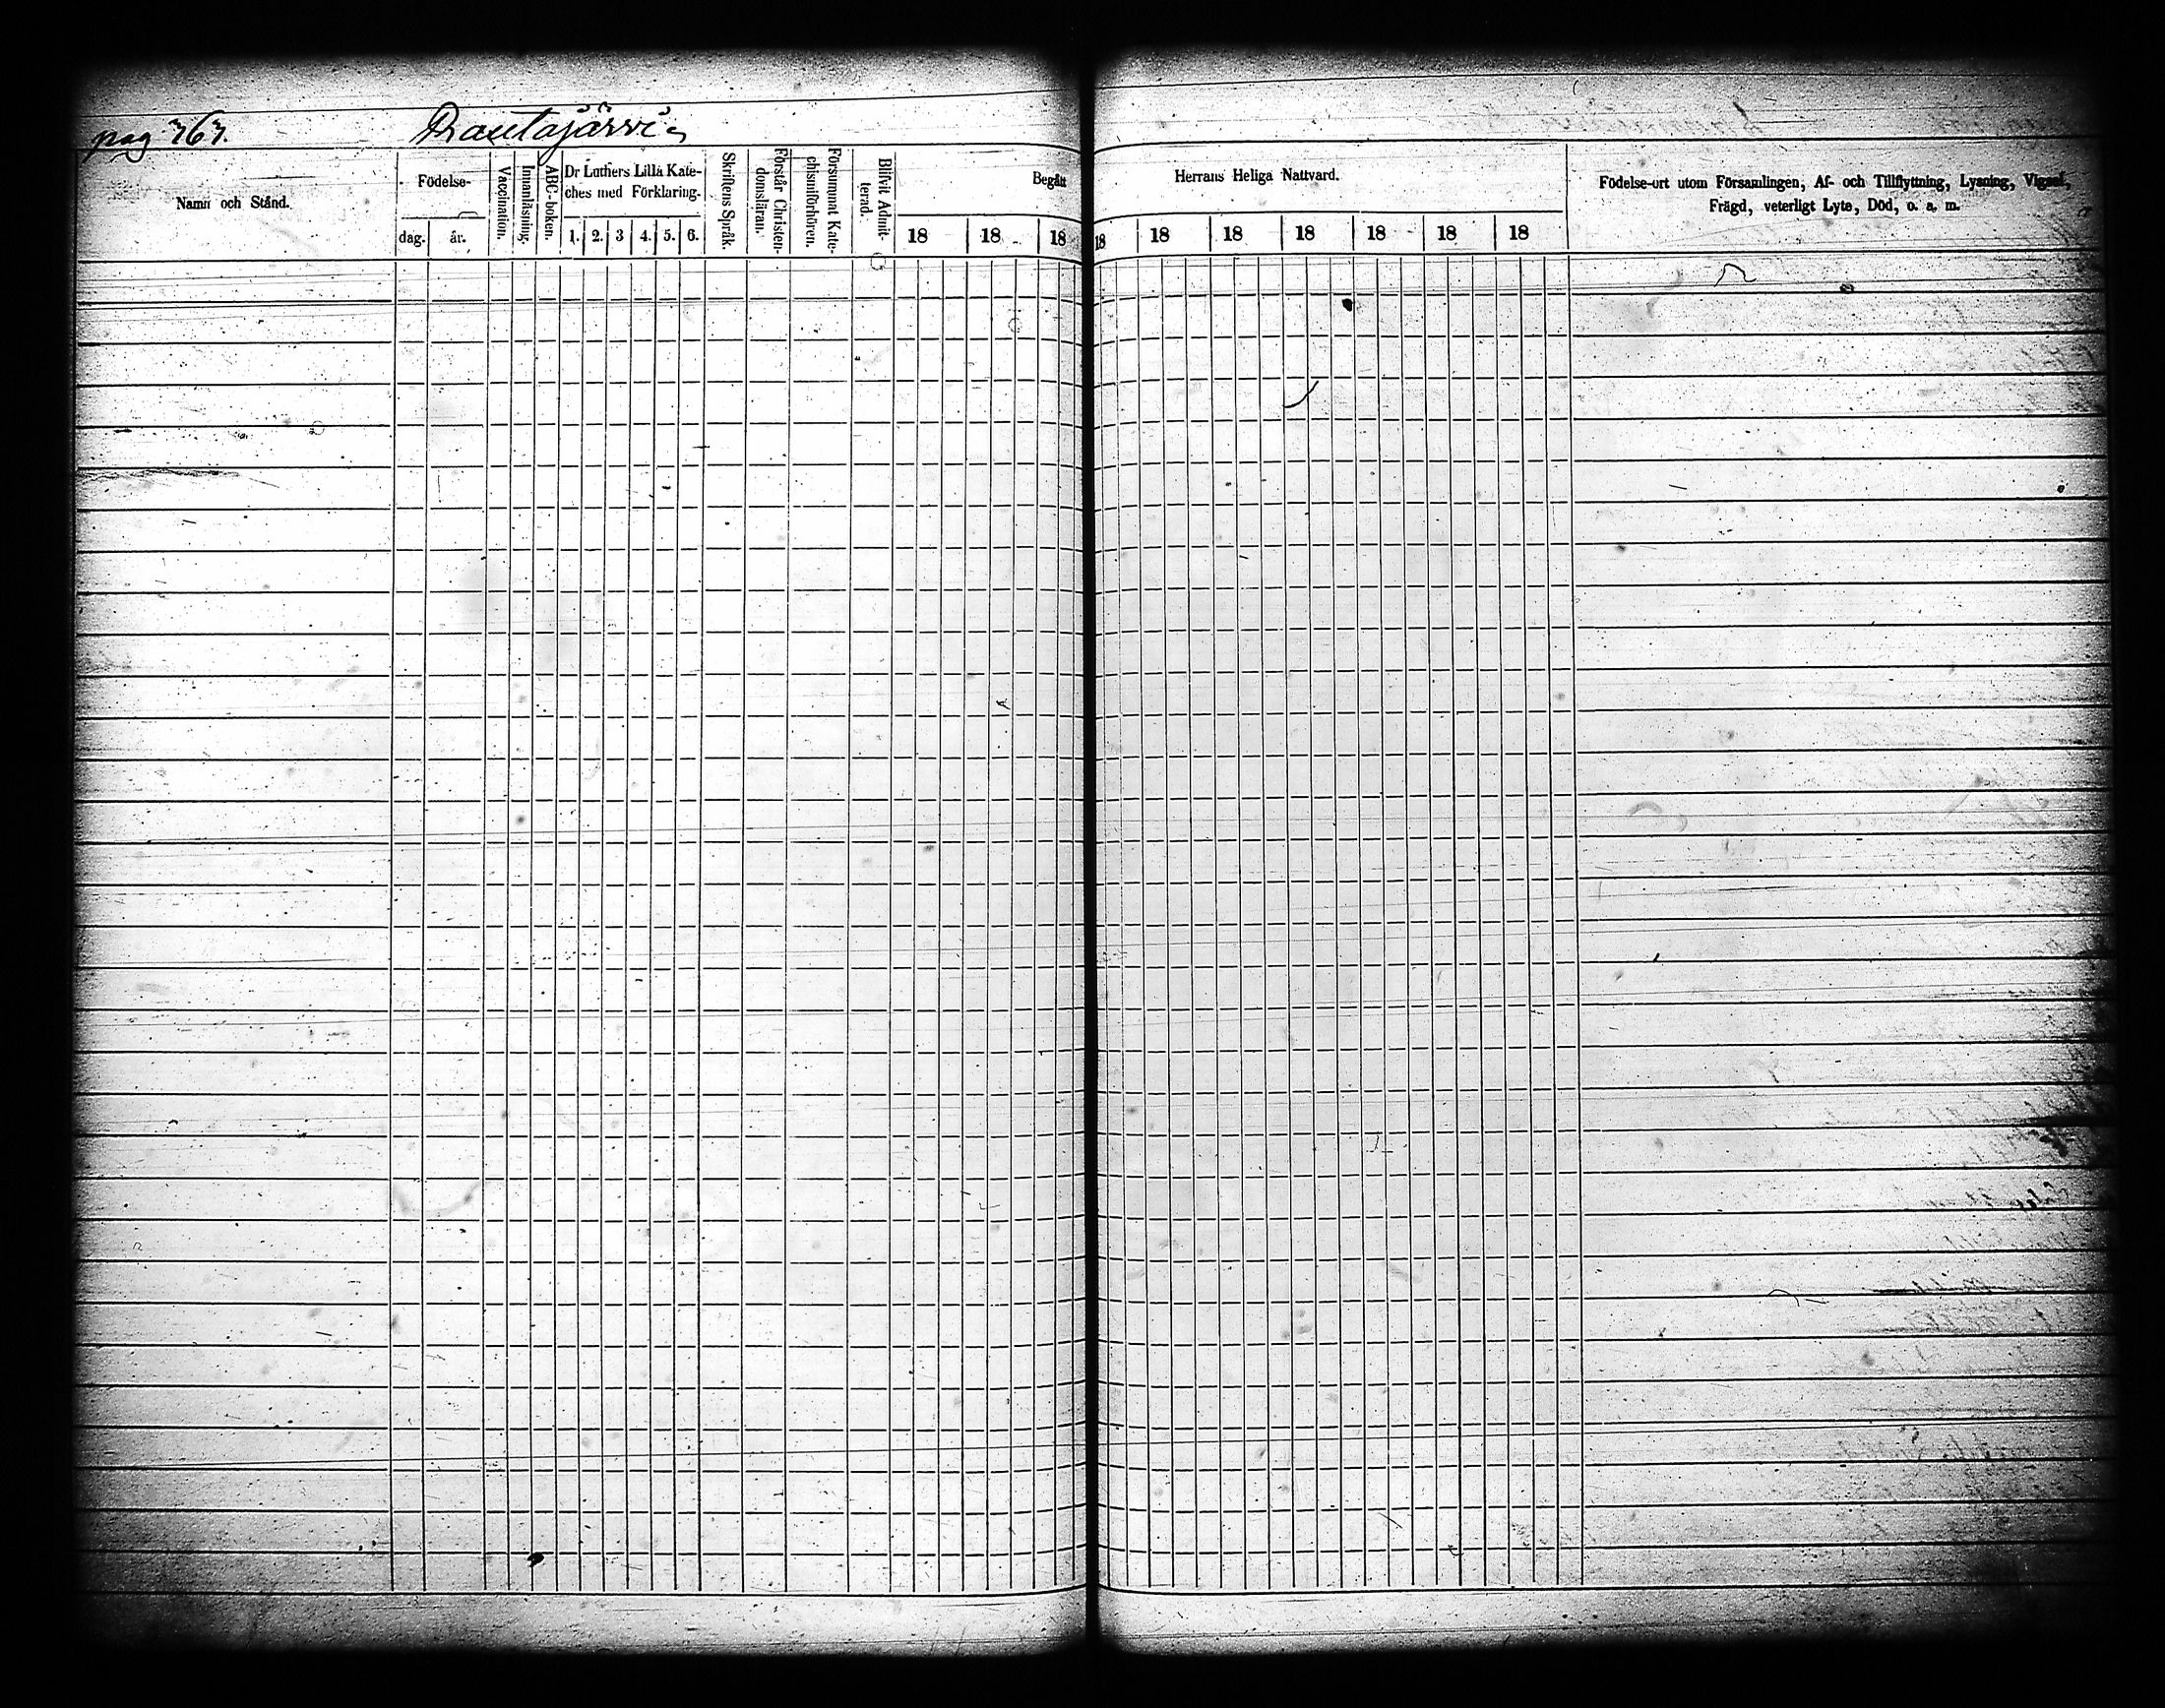 pag 363. Rautajärvi
Namn och Stånd.
Födelse-
dag. år.
Vaccination.
Innanläsning.
ABC-boken.
Dr Luthers Lilla Kate-
ches med Förklaring.
1. 2. 3 4. 5. 6.
Skriftens Språk.
Förstår Christen-
domsläran.
Försummat Kate-
chismiförhören.
Blifvit Admit-
terad.
Begått
18 18 18
Herrans Heliga Nattvard.
18 18 18 18 18 18 18
Födelse-ort utom Församlingen, Af- och Tillflyttning, Lysning, Vigsel,
Frägd, veterligt Lyte, Död, o. a. m.